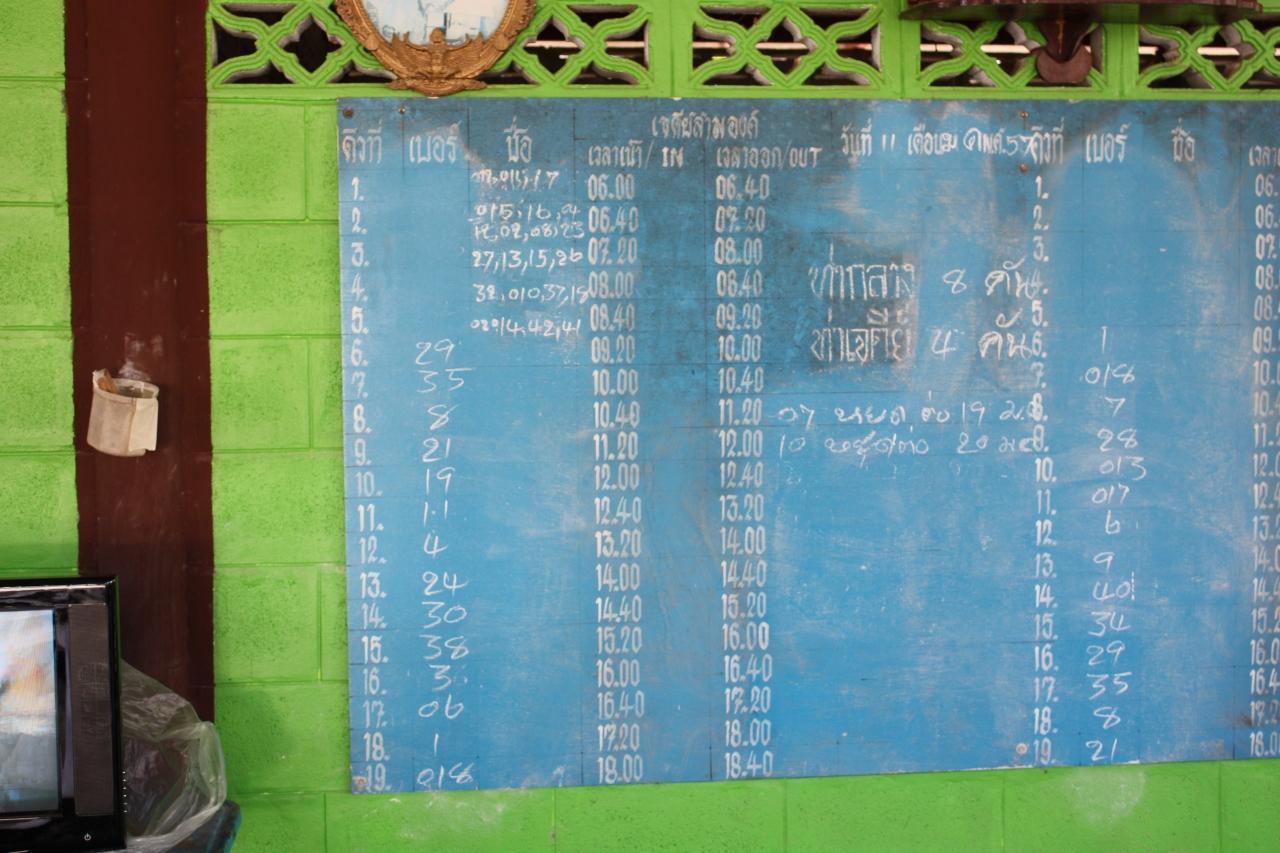 เจดีย์สามองค์
คิวที่ เบอร์ ชื่อ เวลาเข้า/IN เวลาออก/OUT วันที่ 11 เดือน พศ.57 คิวที่ เบอร์ ชื่อ
1. 06.00 06.40 1. 06.
2. 015,16,9 06.40 07.20 2. 06.
12,02,08,23
3. 27,13,15,26 07.20 08.00 3. 07.
4. 32,010,37,18 08.00 08.40 ท่ากลาง 8 คัน 4. 08.
5. 14,42,41 08.40 09.20 5. 08.
6. 29 09.20 10.00 ท่าเจดีย์ 4 คัน 6. 1 09.
7. 35 10.00 10.40 7. 018 10.
8. 8 10.40 11.20 07 หยุดต่อ 19 8. 7
9. 21 11.20 12.00 10 หยุดต่อ 20 9. 28 11.
10. 19 12.00 12.40 10. 013 12.
11. 11 12.40 13.20 11. 017 12.
12. 4 13.20 14.00 12. 6 13.
13. 24 14.00 14.40 13. 9 14.
14. 30 14.40 15.20 14. 40 14.
15. 38 15.20 16.00 15. 34 15.
16. 3 16.00 16.40 16. 29 16.
17. 06 16.40 17.20 17. 35 16.
18. 1 17.20 18.00 18. 8 17.
19. 018 18.00 18.40 19. 21 18.